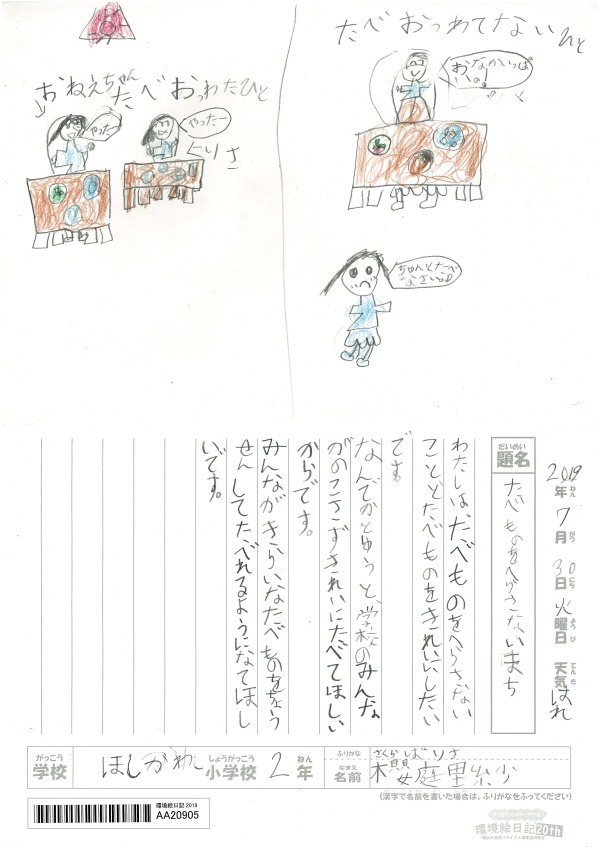 たべおっわてないひと
おなかいっぱい。
ちゃんとたべなさい。
おねえちゃん
たべおっわたひと
やったー
やったー
りさ
2019年7月30日火曜日 天気はれ
ねん がつ にち ようび てんき
だいめい
題名
たべものをへらさないまち
わたしは、たべものをへらさない
ことどたべものをきれいにしたい
です。
なんでかとゆうと、学校のみんな
がのこさずきれいにたべてほしい
からです。
みんながきらいなたべものをちょう
せんしてたべれるようになてほし
いです。
がっこう しょうがっこう ねん
学校 ほしかわ小学校 2年
ふりがな さくらばりさ
なまえ
名前 櫻庭里紗
(漢字で名前を書いた場合は、ふりがなをふってください)
環境絵日記2019
AA20905
環境絵日記20th